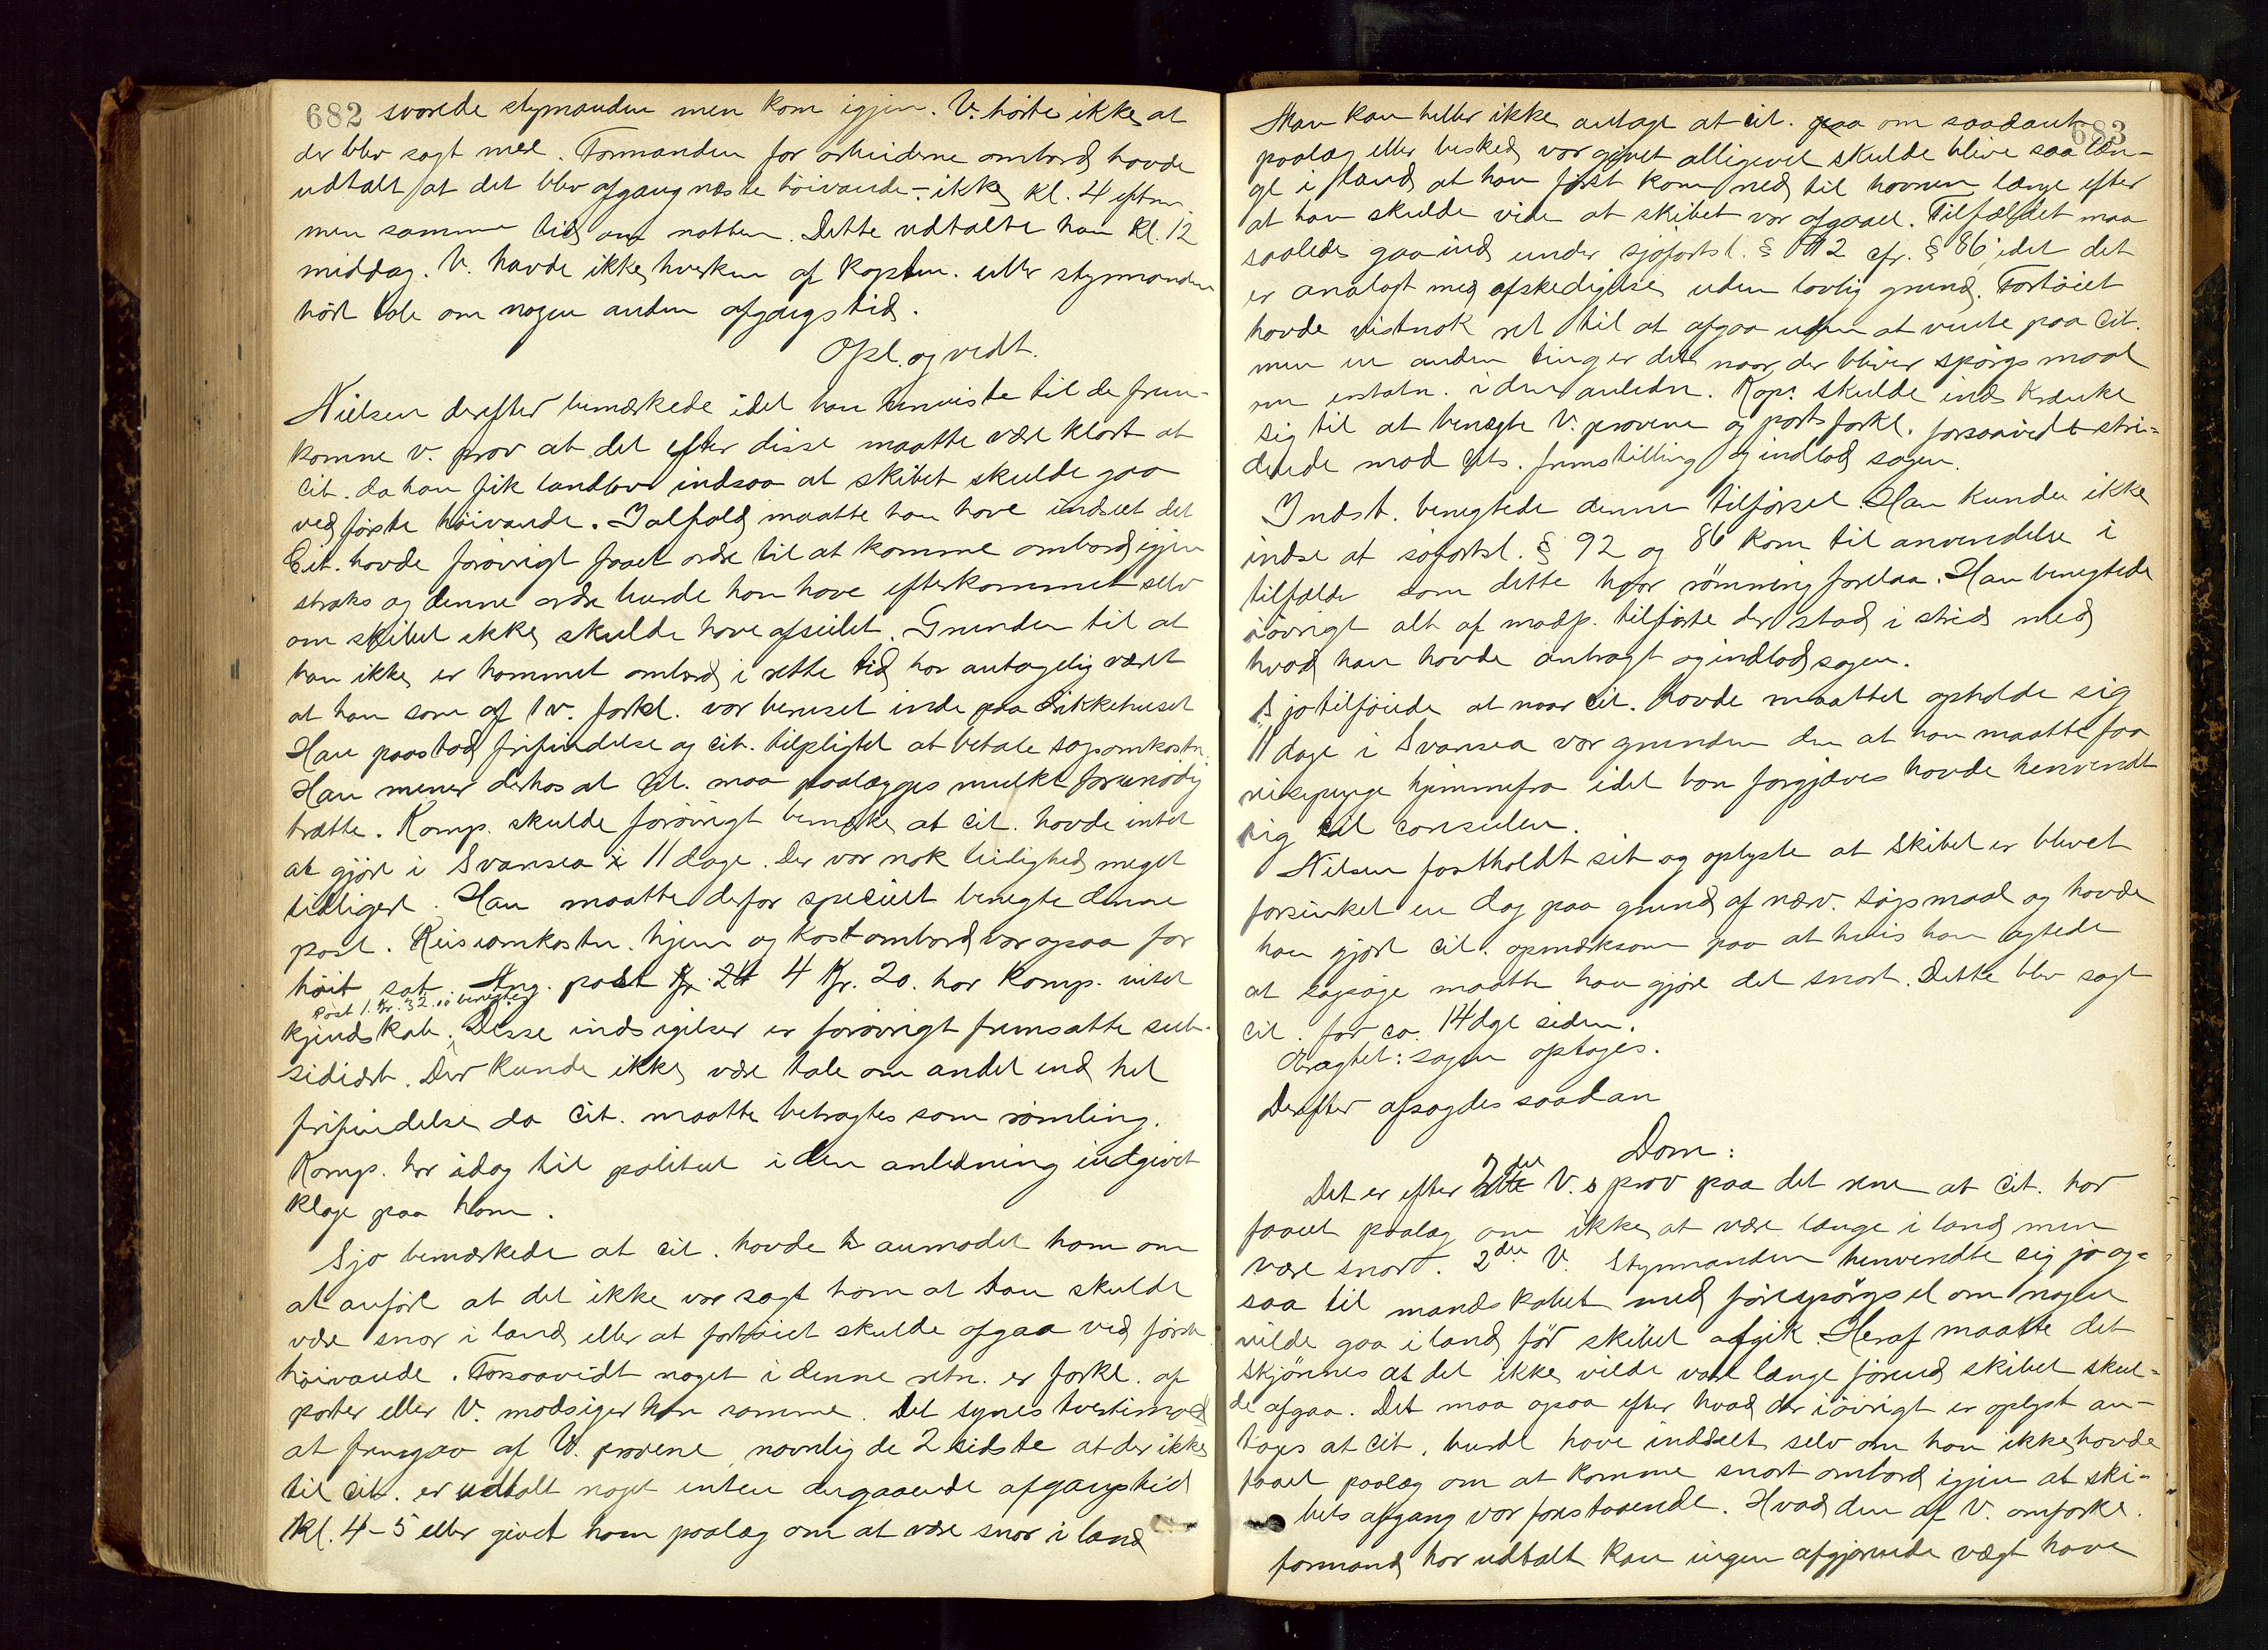 682 svarede styrmanden men kom igjen. V. hørte ikke at
der blev sagt mere. Formanden for arbeiderne ombord havde
udtalt at det blev afgang næste høivande - ikke kl. 4 efterm.
men samme tid om natten. Dette udtalte han kl. 12
middag. V. havde ikke hverken af kaptein. eller styrmanden
hørt tale om nogen anden afgangstid.
Opl. og vedt.
Nielsen derefter bemærkede idet han henviste til de frem-
komne v. prov at det efter disse maatte være klart at
Cit. da han fik landlov indsaa at skibet skulde gaa
ved første høivande. Ialfald maatte han have indseet det
Cit. havde forøvrigt faaet ordre til at komme ombord igjen
straks og denne ordre burde han have efterkommet selv
om skibet ikke skulde have afseilet. Grunden til at
han ikke er kommet ombord i rette tid har antagelig været
at han som af 1 v. forkl. var beruset inde paa drikkehuset
Han paastod frifindelse og cit. tilpligtet at betale sagsomkostn.
Han mener derhos at cit. maa paalægges mulkt for unødig
trætte. Komp. skulde forøvrigt bemærke at cit. havde intet
at gjøre i Svansea i 11 dage. Der var nok leilighed meget
tidligere. Han maatte derfor specielt benegte denne
post. Reiseomkostn. hjem og kost ombord var ogsaa for
høit sat. Ang. post Kr. 24 4 Kr. 20. har komp. intet
Post 1. Kr. 32.10 benegtes
kjendskab. Disse indsigelser er forøvrigt fremsatte sub-
sidiært. Der kunde ikke være tale om andet end hel
frifindelse da cit. maatte betragtes som rømling.
Komp. har idag til politiet i den anledning indgivet
klage paa ham.
Sjo bemærkede at cit. havde anmodet ham om
at anføre at det ikke var sagt ham at han skulde
være snar i land eller at fartøiet skulde afgaa ved første
høivande. Forsaavidt noget i denne retn. er forkl. af
parter eller V. modsiger han samme. Det synes tvertimod
at fremgaa af V. provene navnlig de 2 sidste at der ikke
til cit. er udtalt noget enten angaaende afgangstid
Kl. 4-5 eller givet ham paalæg om at være snar i land
683
Man kan heller ikke antage at cit. om saadant
paalæg eller besked var givet alligevel skulde bleve saa læn-
ge i land at han først kom ned til havnen længe efter
at han skulde vide at skibet var afgaaet. Tilfældet maa
saaledes gaa ind under sjøfartsl. § 92 cfr. § 86 idet det
er analogt med afskedigelse uden lovlig grund. Fartøiet
havde vistnok ret til at afgaa uden at vente paa cit.
men en anden ting er det naar der bliver spørgsmaal
om erstatn. i den anledn. Kop. skulde indskrænke
sig til at benegte V. provene og partsforkl. forsaavidt stri-
dende mod cits. fremstilling og indlod sagen.
Indst. benegtede denne tilførsel. Han kunde ikke
indse at søfartsl. § 92 og 86 kom til anvendelse i
tilfælde som dette hvor rømning forelaa. Han benegtede
iøvrigt alt af modp. tilførte der stod i strid med
hvad han havde andragt og indlod sagen.
Sjo tilføiede at naar cit. havde maattet opholde sig
11 dage i Svansea var grunden den at han maatte faa
reisepenge hjemmefra idet han forgjæves havde henvendt
sig til consulen.
Nilsen fastholdt sit og oplyste at skibet er blevet
forsinket en dag paa grund af nærv. søgsmaal og havde
han gjort cit. opmærksom paa at hvis han agtede
at sagsøge maatte han gjøre det snart. Dette blev sagt
cit. for ca. 14 dge siden.
Eragtet: sagen optages.
Derefter afsagdes saadan
Dom:
Det er efter 2det V.s prov paa det rene at cit. har
faaet paalæg om ikke at være længe i land men
være snar. 2det V. Styrmanden henvendte sig jo og-
saa til mandskabet med forespørgsel om nogen
vilde gaa i land før skibet afgik. Heraf maatte det
skjønnes at det ikke vilde vare længe førend skibet skul-
de afgaa. Det maa ogsaa efter hvad der iøvrigt er oplyst an-
tages at cit. burde have indseet selv om han ikke havde
faaet paalæg om at komme snart ombord igjen at ski-
bets afgang var forestaaende. Hvad den af V. omforkl.
formand har udtalt kan ingen afgjørende vægt have